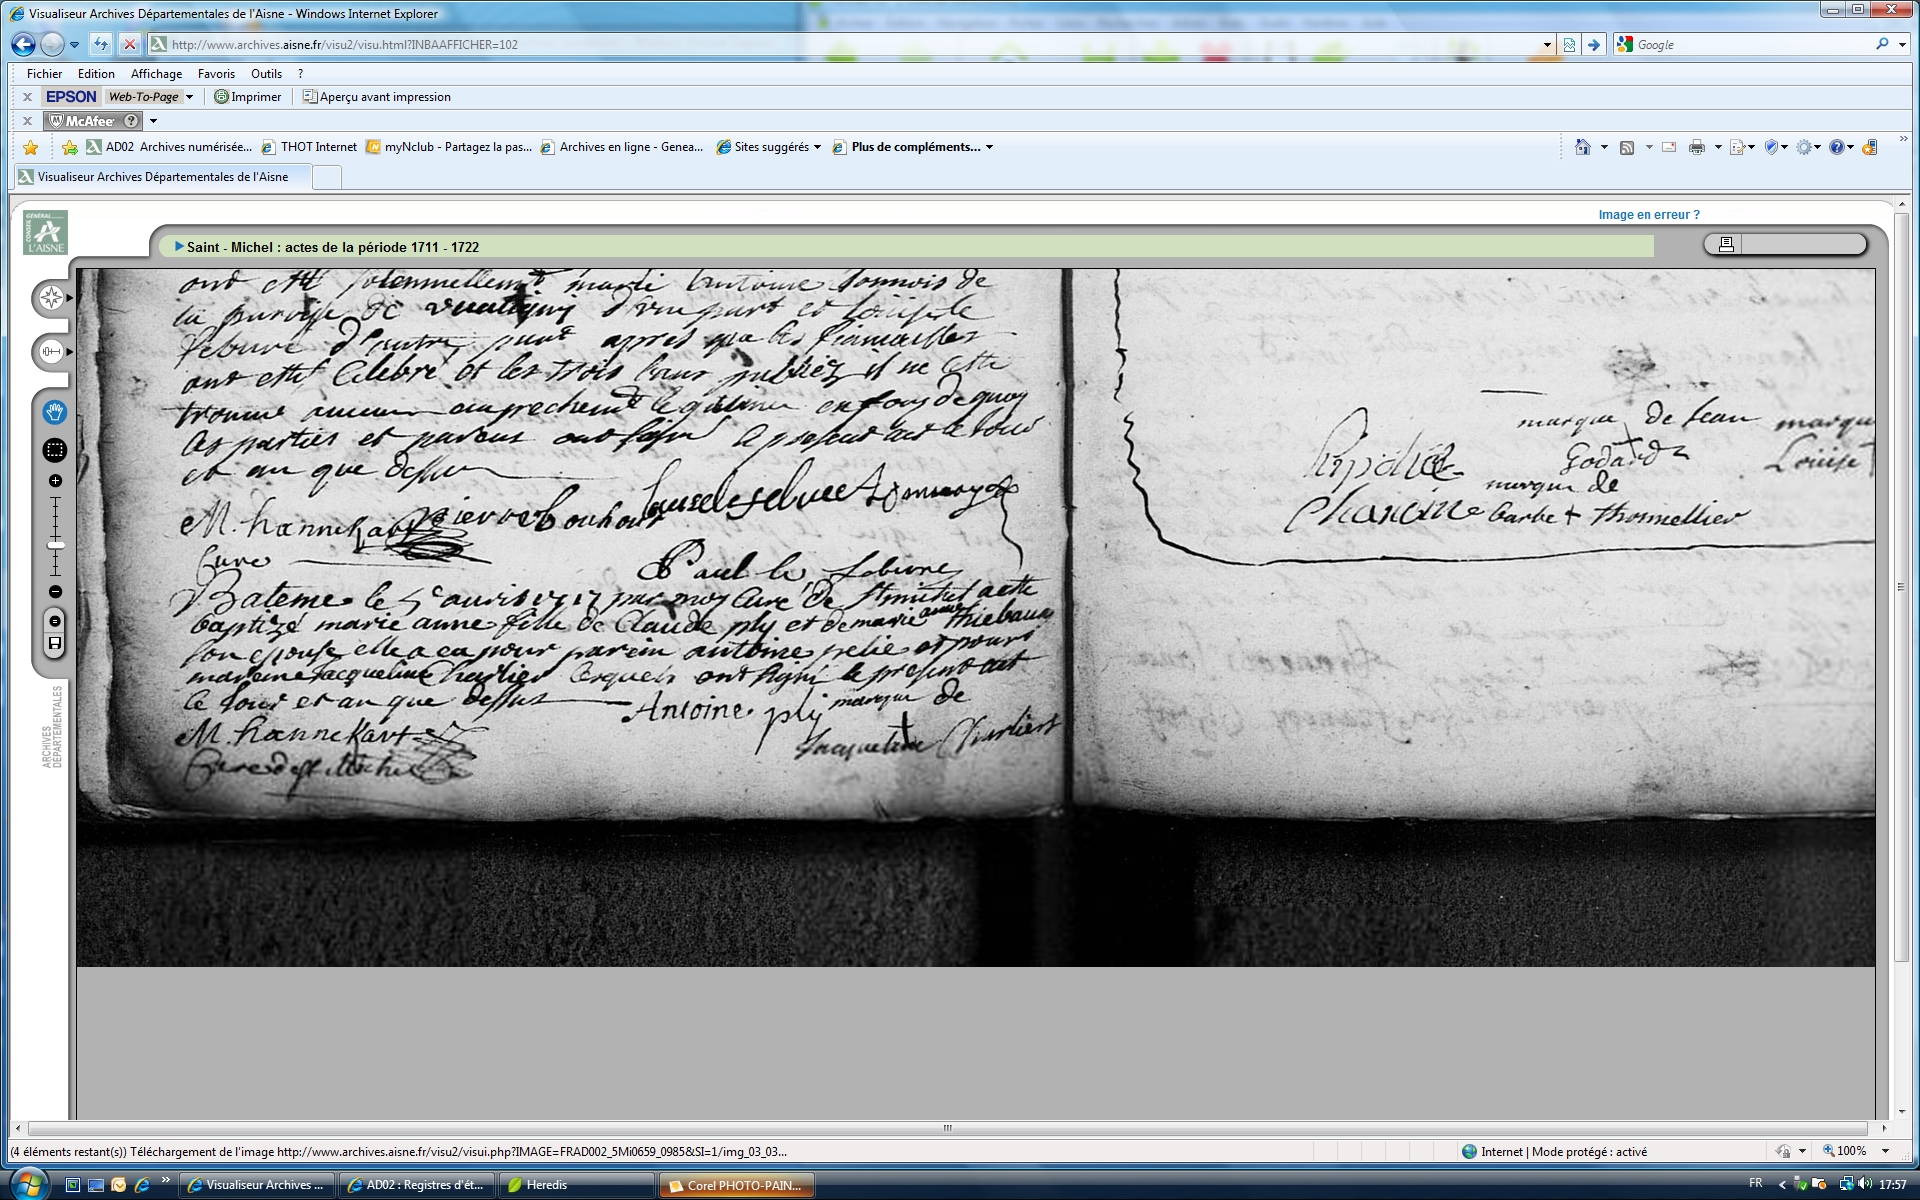 Visualiseur Archives Départementales de l'Aisne - Windows Internet Explorer
http://www.archives.aisne.fr/visu2/visu.html?INBAAFFICHER=102
Google
Fichier Edition Affichage Favoris Outils ?
x EPSON Web-To-Page Imprimer Aperçu avant impression
x McAfee ?
AD02 Archives numérisée... THOT Internet myNclub - Partagez la pas... Archives en ligne - Genea... Sites suggérés Plus de compléments...
Visualiseur Archives Départementales de l'Aisne
Image en erreur ?
CONSEIL GÉNÉRAL L'AISNE
Saint - Michel : actes de la période 1711 - 1722
ont esté solemnellemt marié Antoine de
la paroisse de d'une part et Louise le
febure d'autre part apres que les fiancailles
ont esté Celebré et les trois bans publiez il ne
trouvé aucun empechemt legitime en foy de quoy
les parties et parens ont signé le present act le jour
et an que dessus
M. hannekart pierre bouhour Louise le febure
Cure
Paul le febure
Bateme le 5e avril 1717 par moy Curé de St michel a esté
baptizé marie anne fille de Claude ply et de marie anne thiebaux
son epouse elle a eu pour parein antoine pelié et pour
mareine Jacqueline Charlier lesquels ont signé le present act
le jour et an que dessus
Antoine ply marque de
M. hannekart
Jacqueline Charliers
Cure de st Michel
marque de Jean
Godard
marque
Louise
marque de
barbe + thonnellier
ARCHIVES DÉPARTEMENTALES
(4 éléments restant(s)) Téléchargement de l'image http://www.archives.aisne.fr/visu2/visui.php?IMAGE=FRAD002_5Mi0659_0985&SI=1/img_03_03...
Internet | Mode protégé : activé
100%
Visualiseur Archives ... AD02 : Registres d'ét... Heredis Corel PHOTO-PAIN...
FR 17:57